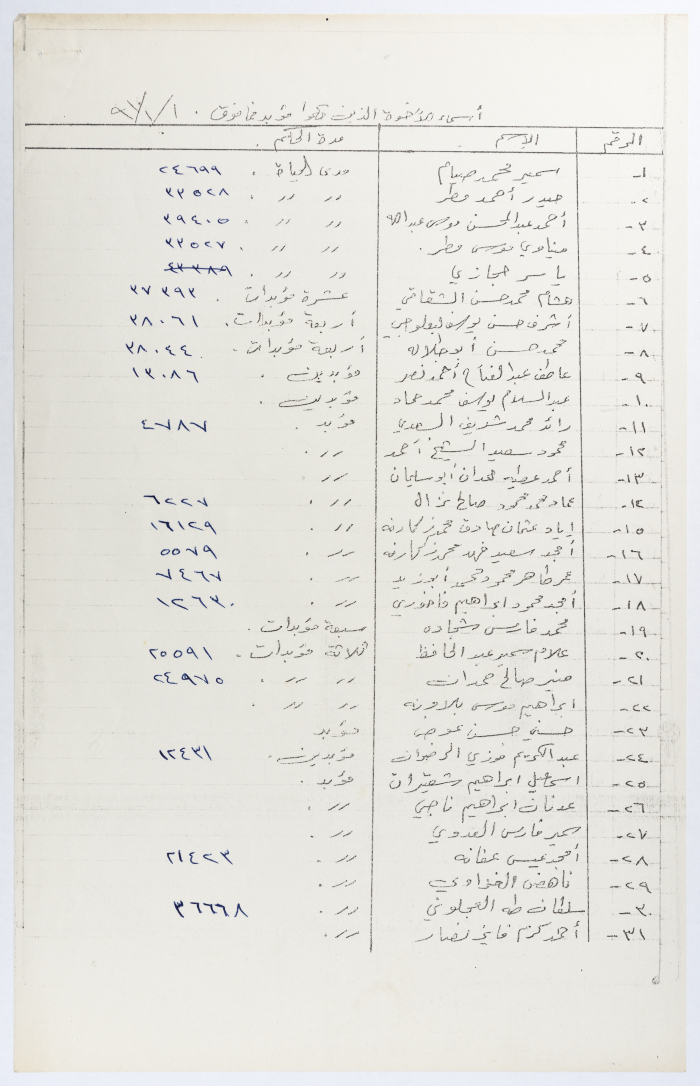 أسماء الأخوة الذين حكموا مؤبد فما فوق . ٩٣/١/١
الرقم الإسم مدة الحكم
١- سمير محمد صيام مدى الحياة . ٢٤٦٩٩
٢- حيدر أحمد مطر 〃 〃 . ٣٣٥٢٨
٣- أحمد عبد المحسن موسى عبد الله 〃 〃 . ٣٩٤٠٥
٤- مناوي موسى مطر . 〃 〃 . ٣٣٥٢٧
٥- ياسر حجازي 〃 〃 . ٤٣٣٨٩
٦- هشام محمد حسن الشقاقي عشرة مؤبدات . ٣٧٣٩٣
٧- أشرف حسن يوسف أربعة مؤبدات . ٣٨٠٦١
٨- محمد حسن أبو جلاله أربعة مؤبدات . ٣٨٠٤٤
٩- عاطف عبد الفتاح أحمد نصر مؤبدين . ١٣٠٨٦
١٠- عبد السلام يوسف محمد حماد مؤبدين .
١١- رائد محمد شريف السعدي مؤبد . ٤٧٨٧
١٢- محمود سعيد الشيخ أحمد 〃 .
١٣- أحمد عطيه حمدان أبو سليمان 〃
١٤- عماد محمد محمود صالح نزال 〃 . ٦٢٢٧
١٥- اياد عثمان صادق محمود كمارنه 〃 . ١٦١٢٩
١٦- أمجد سعيد فهد محمود كمارنه 〃 . ٥٥٧٩
١٧- عمر طاهر محمود محمد أبو زيد 〃 . ٧٤٦٧
١٨- أمجد محمود ابراهيم فاخوري 〃 . ١٢٦٣٠
١٩- محمد فارس شحاده سبعة مؤبدات .
٢٠- علام سمير عبد الحافظ ثلاثة مؤبدات . ٢٥٥٩١
٢١- منير صالح حمدان 〃 〃 . ٢٤٩٧٥
٢٢- ابراهيم موسى بلاونه 〃 〃 .
٢٣- حسني حسن عوض مؤبد
٢٤- عبد الكريم فوزي الرضوان مؤبدين . ١٢٤٣١
٢٥- اسماعيل ابراهيم شقيرات مؤبد .
٢٦- عدنان ابراهيم ناجي 〃 .
٢٧- سمير فارس العدوي 〃 .
٢٨- أمجد عيسى عفانه 〃 . ٢١٤٢٣
٢٩- ناهض الغزاوي 〃 .
٣٠- سلطان طه العجلوني 〃 . ٣٦٦٦٨
٣١- أحمد كرم فايز نصار 〃 .